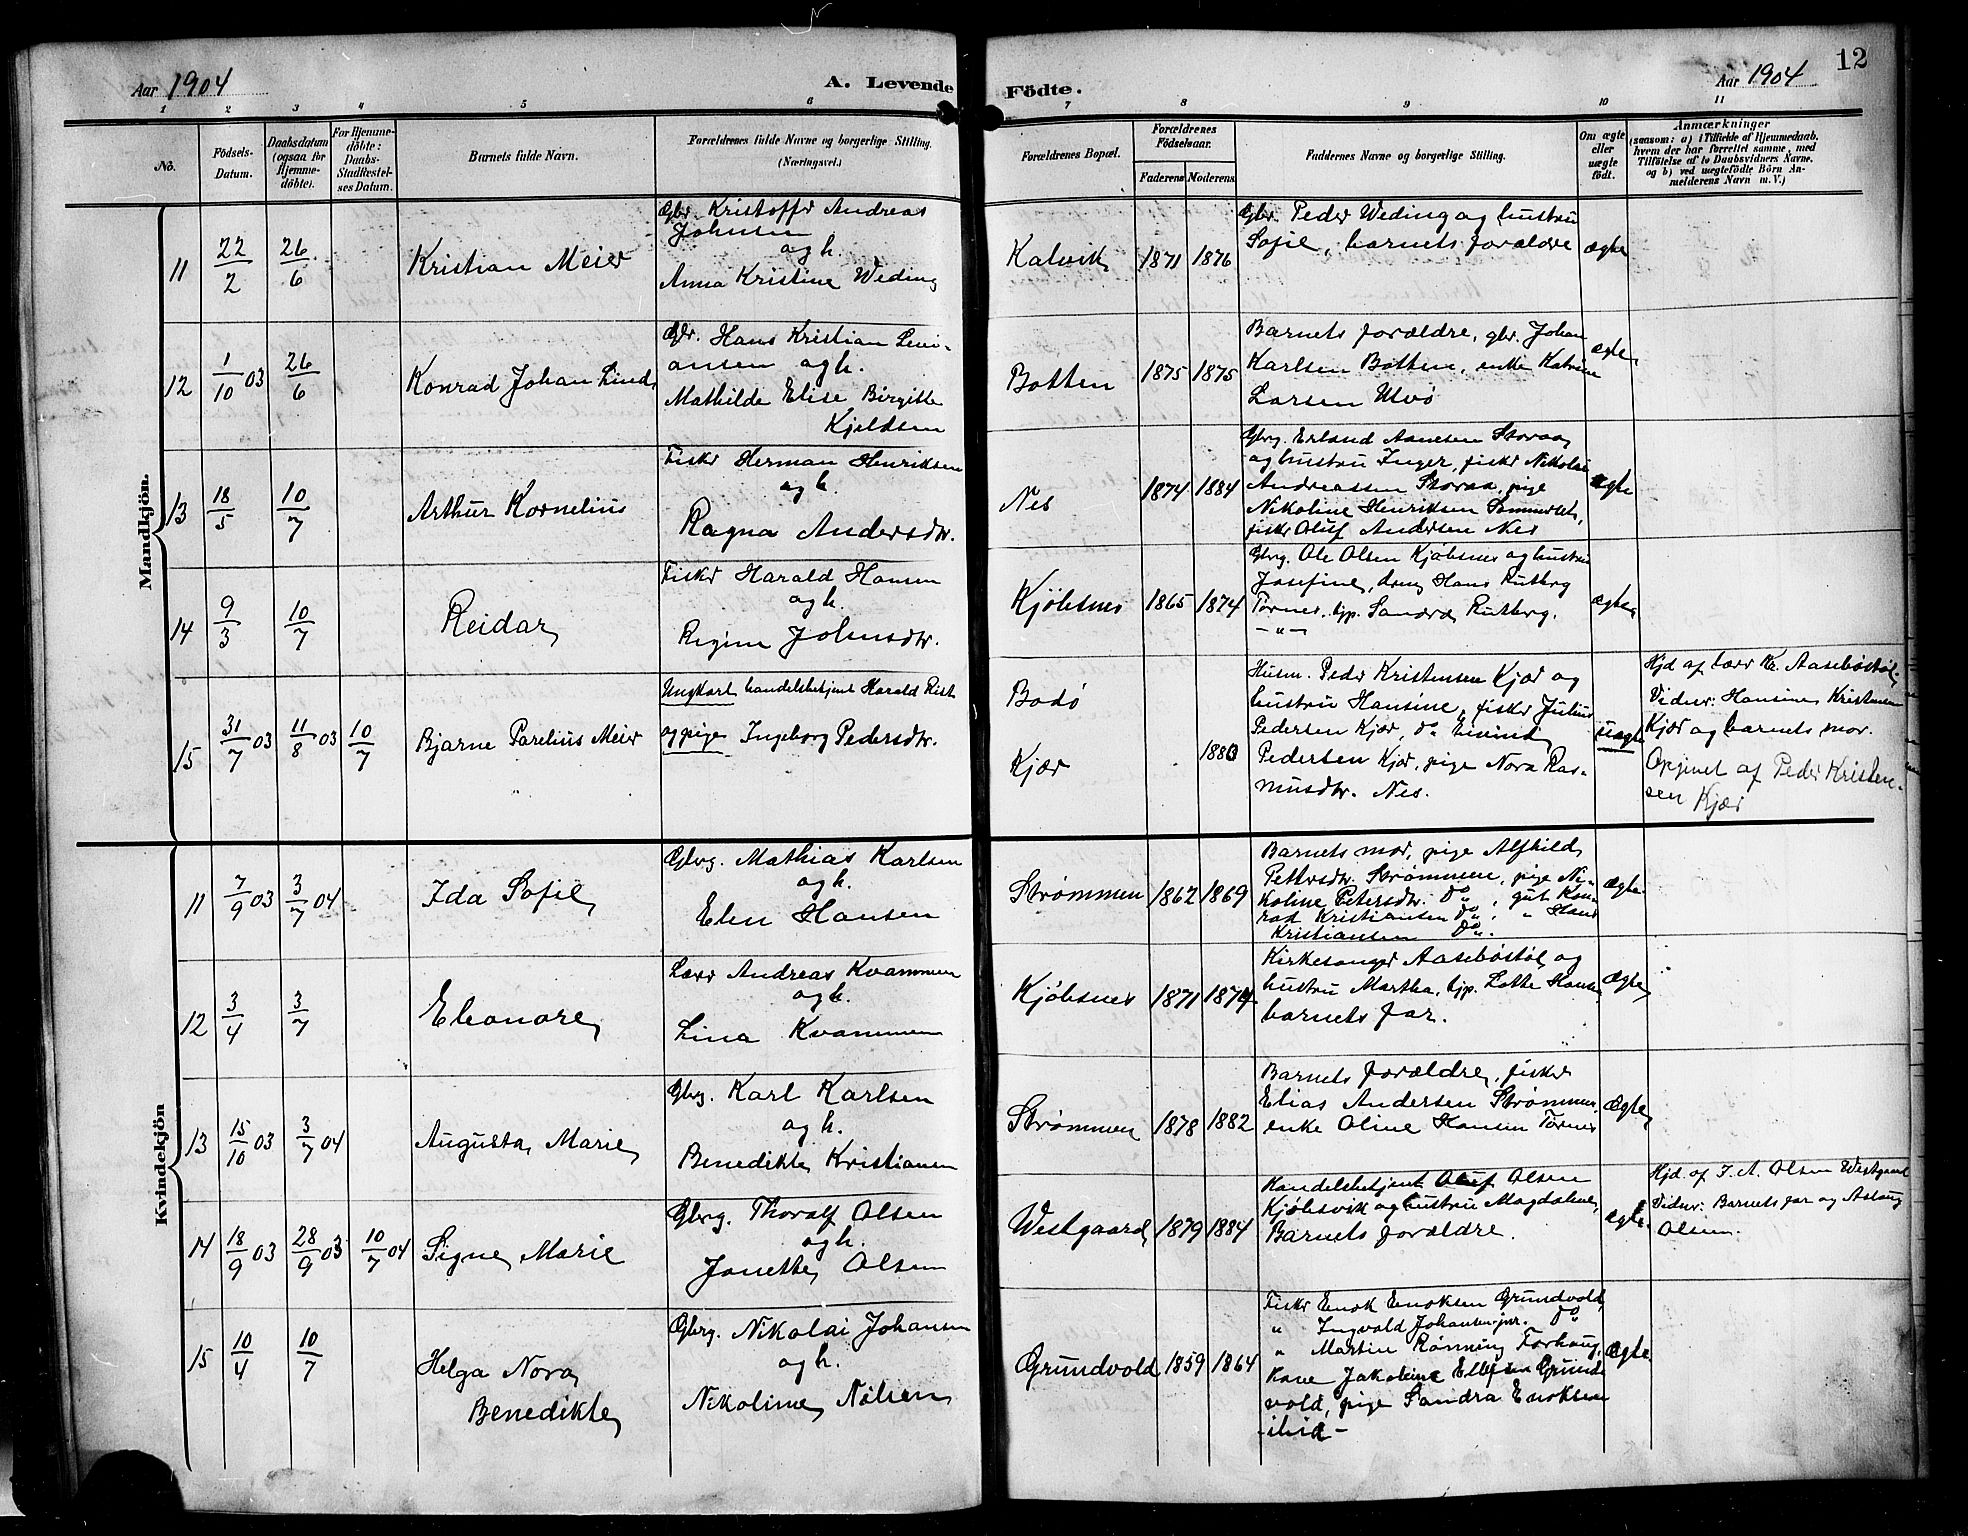 12
Aar 1904
A. Levende
Födte.
Aar 1904
1 2 3 4 5 6 7 8 9 10 11
No.
Födsels-
Datum.
Daabsdatum
(ogsaa for
Hjemme-
döbte).
For Hjemme-
döbte:
Daabs-
Stadfæstel-
ses Datum.
Barnets fulde Navn.
Forældrenes fulde Navne og borgerlige Stilling.
(Næringsvei.)
Forældrenes Bopæl.
Forældrenes
Födselsaar.
Faderens Moderens
Faddernes Navne og borgerlige Stilling.
Om ægte
eller
uægte
födt.
Anmærkninger
(saasom: a) i Tilfælde af Hjemmedaab,
hvem der har forrettet samme, med
Tilföielse af to Daabsvidners Navne.
og b) ved uægtefödte Börn An-
melderens Navn m. V.)
Mandkjön.
11 22/2 26/6 Kristian Meier
Gbr. Kristoffer Andreas
Johnsen
og h.
Anna Kristine Weding
Kalvik 1871 1876
Gbr. Peder Weding og hustru
Sofie, barnets forældre
ægte
12 1/10 03 26/6 Konrad Johan Lind
Gbr. Hans Kristian Levi-
ansen og h.
Mathilde Elise Birgitte
Kjeldsen
Botten 1875 1875
Barnets forældre, gbr. Johan
Karlsen Botten, enke Katrine
Larsen Utvö
ægte
13 18/5 10/7 Arthur Kornelius
Fisker Herman Henriksen
og h.
Ragna Andersdtr.
Nes 1874 1884
Gbrg. Erland Aanesen Storaa
og hustru Inger, fisker Nikolai
Andreassen Storaa, pige
Nikoline Henriksen Sommerset,
fisker Oluf Andersen Nes
ægte
14 9/3 10/7 Reidar
Fisker Harald Hansen
og h.
Regine Johnsdtr.
Kjöbsnes 1865 1874
Gbrg. Ole Olsen Kjöbsnes og hustru
Josefine, dreng Hans Rutberg
Tornes, tjp. Sandra Rutberg.
— " —
ægte
15 31/7 03 11/8 03 10/7 Bjarne Parelius Meier
Ungkarl handelsbetjent Harald Rist
og pige Ingeborg Pedersdtr.
Bodö
Kjær 1883
Husm. Peder Kristensen Kjær og
hustru Hansine, fisker Julius
Pedersen Kjær, do Eivind
Pedersen Kjær, pige Nora Ras-
musdtr. Nes.
uægte
Hjd af lærer Kr. Aaseböstöl.
Vidner: Hansine Kristensen
Kjær og barnets mor.
Opgivet af Peder Kristen-
sen Kjær
Kvindekjön
11 7/9 03 3/7 04 Ida Sofie
Gbrg. Mathias Karlsen
og h.
Elen Hansen
Strömmen 1862 1869
Barnets mor, pige Alfhild
Pettersdtr. Strömmen, pige Ni-
koline Petersdtr. do, gut Kon-
rad Kristiansen do, " Hans
Kristiansen do.
ægte
12 3/4 3/7 Eleonore
Lærer Andreas Kvammen
og h.
Lina Kvammen
Kjöbsnes 1871 1874
Kirkesanger Aaseböstöl og
hustru Martha, tjp. Lotte Hansen
barnets far.
ægte
13 15/10 03 3/7 04 Augusta Marie
Gbrg. Karl Karlsen
og h.
Benedikte Kristiansen
Strömmen 1878 1882
Barnets forældre, fisker
Elias Andersen Strömmen,
enke Oline Hansen Tornes
ægte
14 18/9 03 28/9 03 10/7 04 Signe Marie
Gbrg. Thoralf Olsen
og h.
Janette Olsen
Westgaard 1879 1884
Handelsbetjent Oluf Olsen
Kjöbsvik og hustru Magdalene,
Barnets forældre.
ægte
Hjd. af J. A. Olsen Westgaard
Vidner: Barnets far og Aslaug
Olsen.
15 10/4 10/7 Helga Nora
Benedikte
Gbrg. Nikolai Johansen
og h.
Nikoline Nilsen
Grundvold 1859 1864
Fisker Enok Enoksen Grundvold,
" Ingvald Johansen jnr. do
" Martin Rönning Forhaug,
Kone Jakobine Ellefsen Grund-
vold, pige Sandra Enoksen
— ibid —
ægte